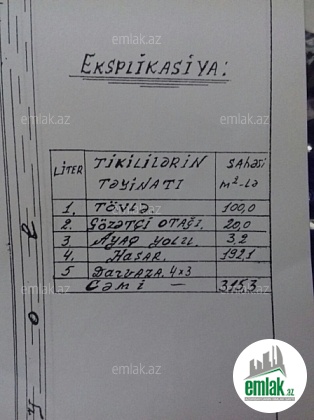 EKSPLİKASİYA:
LİTER TİKİLİLƏRİN TƏYİNATI SAHƏSİ M²-LƏ
1. TÖVLƏ. 100,0
2. GÖZƏTÇİ OTAĞI. 20,0
3. AYAQ YOLU. 3,2
4. HASAR. 192,1
5 DARVAZA. 4×3
CƏMİ — 315,3
emlak.az
emlak.az
emlak.az
emlak.az
emlak.az
emlak.az
emlak.az